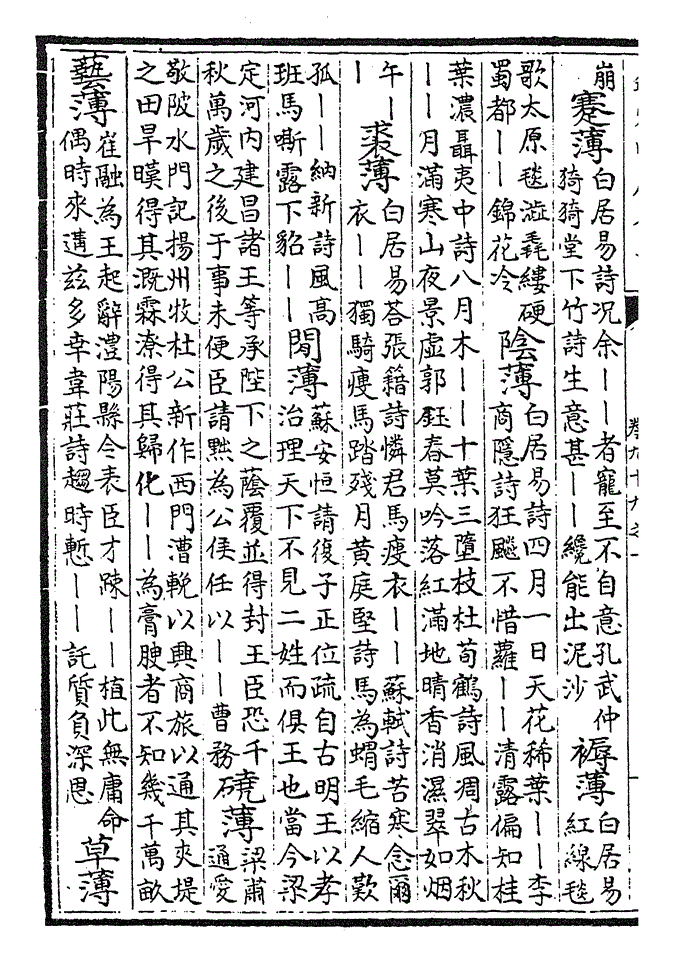 崩
蹇薄
白居易詩况余——者寵至不自意孔武仲
猗猗堂下竹詩生意甚——纔能出泥沙
褥薄
白居易
紅線毯
歌太原毯澁毳縷硬
蜀都——錦花冷
陰薄
白居易詩四月一日天花稀葉——李
商隱詩狂飈不惜蘿——清露偏知桂
葉濃聶夷中詩八月木——十葉三墮枝杜荀鶴詩風凋古木秋
——月滿寒山夜景虛郭鈺春莫吟落紅滿地晴香消濕翠如烟
午—
—
裘薄
白居易荅張籍詩憐君馬瘦衣——蘇軾詩苦寒念爾
衣——獨騎瘦馬踏殘月黄庭堅詩馬為蝟毛縮人歎
孤——納新詩風高
班馬嘶露下貂——
閒薄
蘇安恒請復子正位疏自古明王以孝
治理天下不見二姓而俱王也當今梁
定河内建昌諸王等承陛下之蔭覆並得封王臣恐千
秋萬歲之後于事未便臣請黜為公侯任以——曹務
磽薄
梁肅
通愛
敬陂水門記揚州牧杜公新作西門漕輓以興商旅以通其夾堤
之田旱暵得其溉霖潦得其歸化——為膏腴者不知幾千萬畝
藝薄
崔融為王起辭澧陽縣令表臣才踈——植此無庸命
偶時來遘兹多幸韋莊詩趨時慙——託質負深恩
草薄